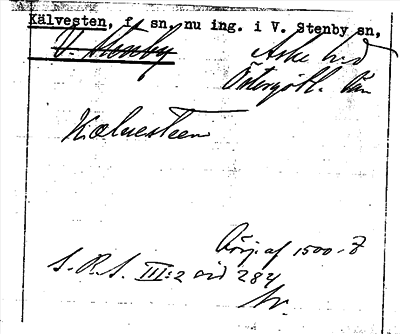 Kälvesten, f. sn, nu ing. i V. Stenby sn,
V. Stenby Aska hd
Östergötl. län
Kæluesteen
Börj. af 1500-t
S. R. S. III:2 sid 284